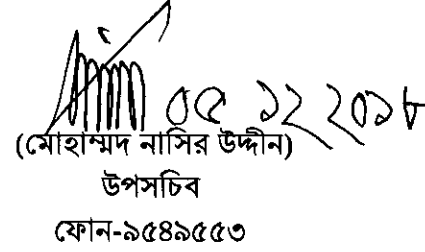 ০৫ ১২ ২০১৮
(মোহাম্মদ নাসির উদ্দীন)
উপসচিব
ফোন-৯৫৪৯৫৫৩